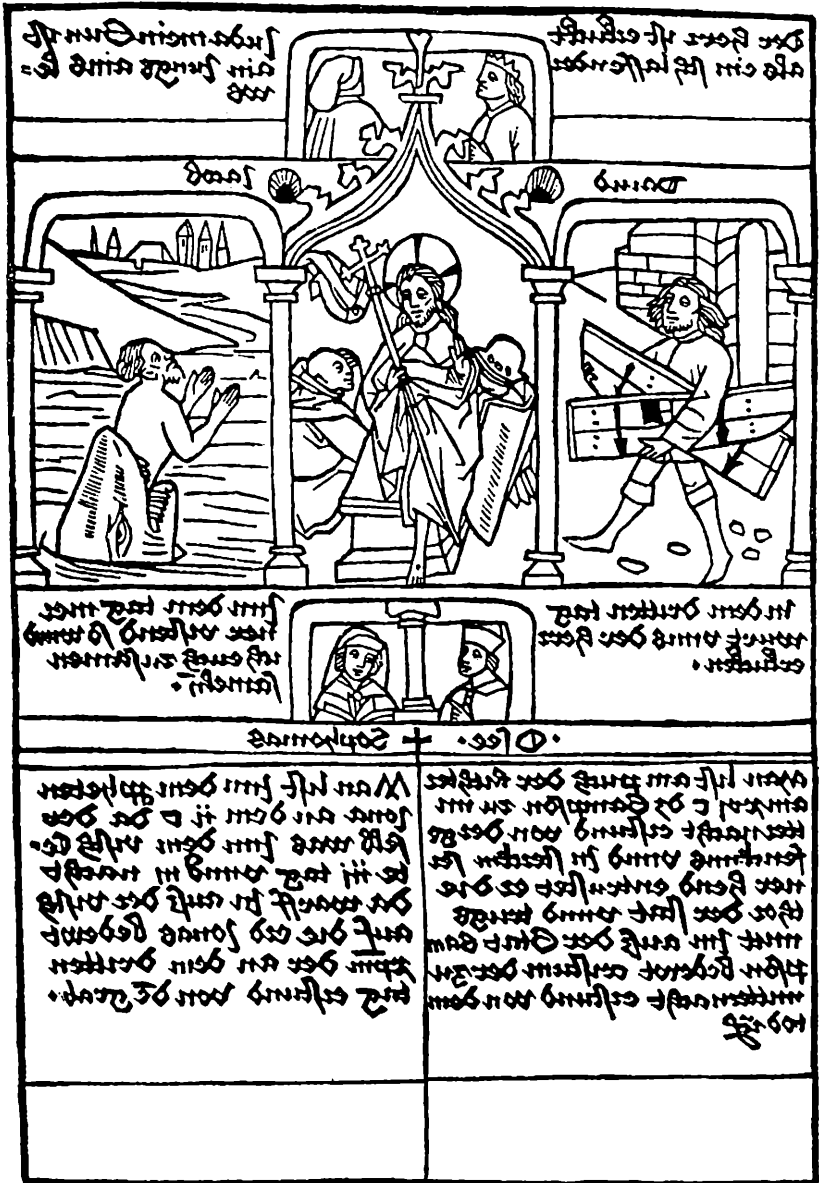 Der herr ist erkückt
als ein schlaffender
Juda mein Sun ist
ain Jungs ains le=
wo
Dauid
Jacob
In dem dritten tag
wurt vnns der herr
erkücken.
Jnn dem tag mei
ner vrstend so wird
ich euch zusamen
sameln.
Osee. Sophonias
Man list am puch der richter
am xvj c dz Sampson zu mi
tternacht erstund von der ge
fencknus vnnd in sterck sei
ner hend er die
thor der stat vnnd trugs
mitt Jm auß der Stat Sam
pson bedewt cristum der zu
mitternacht erstund von dem
tod
Man list Jnn dem ppheten
Jona an dem ii c da der
selb was Jnn dem visch
iij tag vnnd iij nacht
da warff in auß der visch
auf die erd Jonas bedewt
xpm der an dem dritten
tag erstund von dē grab.